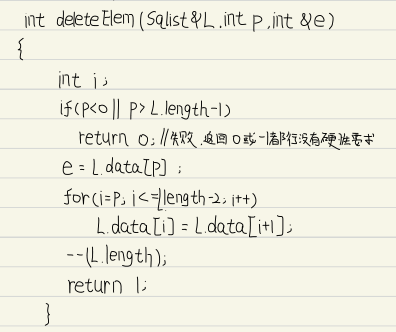 int deleteElem(Sqlist&L.int p,int &e)
{
int i;
if(p<0 || p> L.length-1)
return 0; //失败.返回0或-1都行没有硬性要求
e = L.data[p] ;
for(i=p; i<=Llength-2; i++)
L.data[i] = L.data[i+1];
--(L.length);
return 1;
}